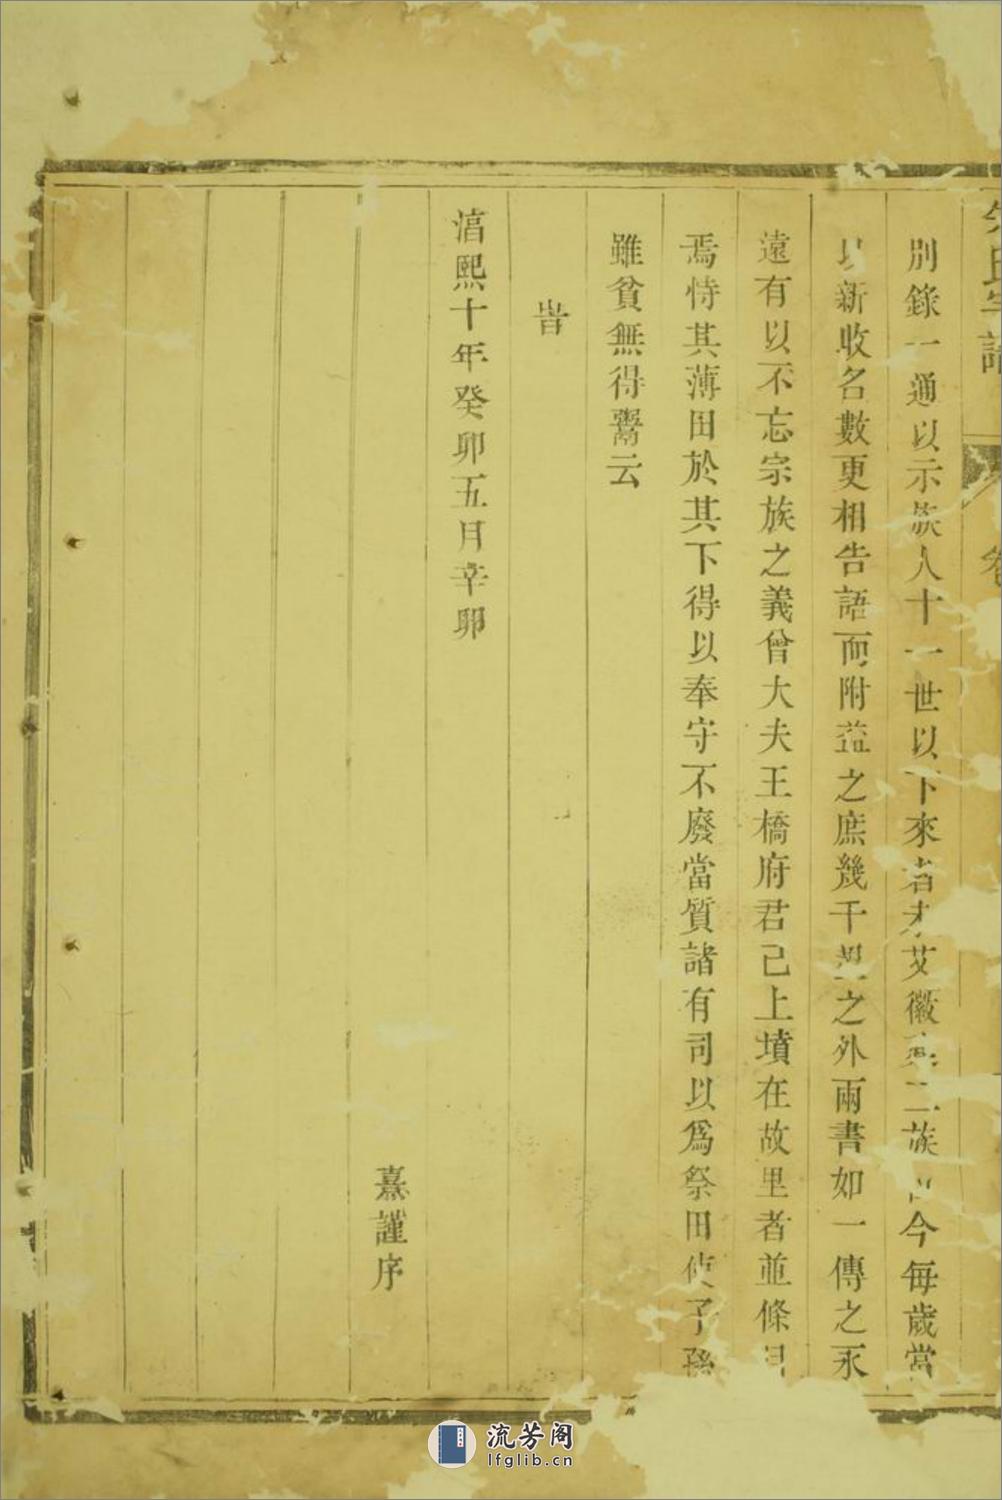 氏宗譜
卷
別錄一通以示族人十一世以下來者未艾徽婺二族自今每歲當
以新收名數更相告語而附益之庶幾千里之外兩書如一傳之永
遠有以不忘宗族之義曾大夫王橋府君已上墳在故里者並條
焉恃其薄田於其下得以奉守不廢當質諸有司以為祭田使子孫
雖貧無得鬻云
旹
淳熙十年癸卯五月辛卯
熹謹序
流芳阁
lfglib.cn